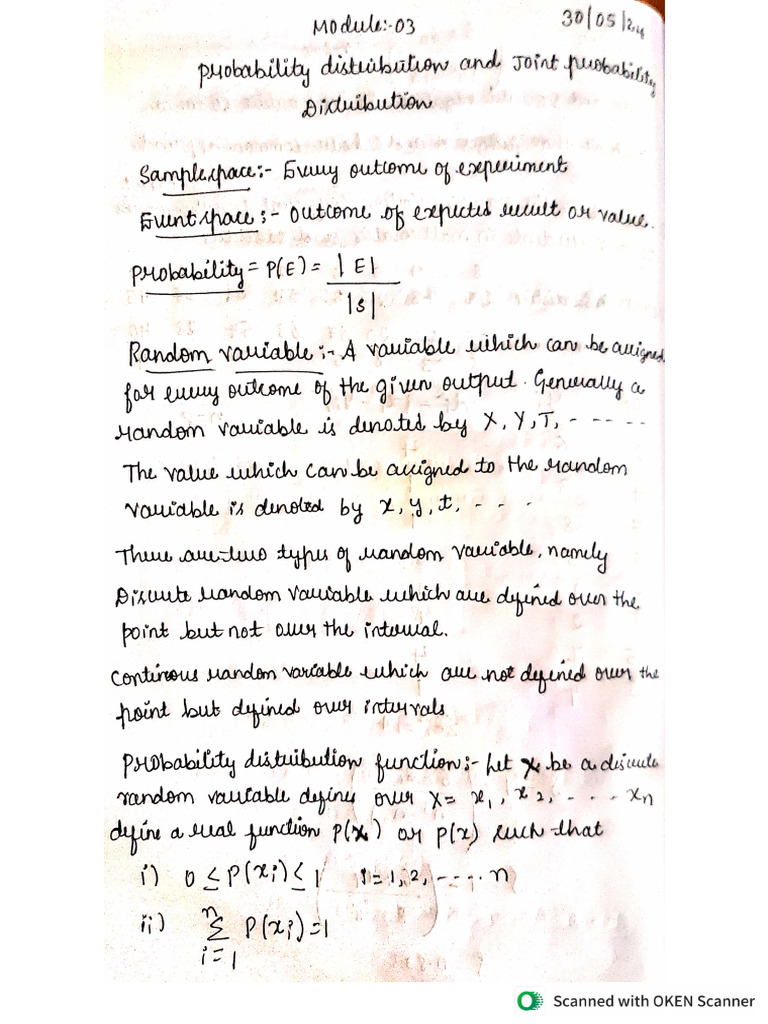 Module:-03
30/05/24
probability distribution and Joint probability
Distribution
Samplespace:- Every outcome of experiment
Event space:- outcome of expected result or value.
Probability = P(E) = |E|
|s|
Random variable:- A variable which can be assigned
for every outcome of the given output. Generally a
random variable is denoted by X, Y, T, - - - - -
The value which can be assigned to the random
variable is denoted by x, y, t, - - - -
There are two types of random variable, namely
Discrete random variable which are defined over the
point but not over the interval.
continous random variable which are not defined over the
point but defined over intervals
Probability distribution function:- Let X be a discrete
random variable defines over X= x1, x2, - - - - xn
define a real function P(x) or p(x) such that
i) 0 ≤ P(xi) ≤ 1 i=1,2,-----n
ii) n
Σ P(xi)=1
i=1
Scanned with OKEN Scanner